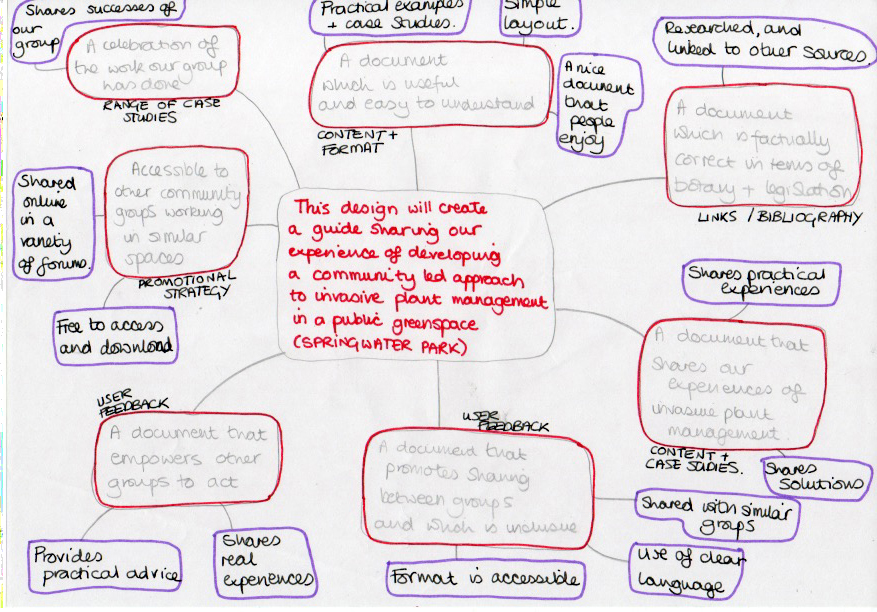 Shares successes of
our
group
A celebration of
the work our group
has done
RANGE OF CASE
STUDIES
Practical examples
+ case studies.
Simple
layout.
A document
which is useful
and easy to understand
CONTENT +
FORMAT
A nice
document
that
people
enjoy
Researched, and
linked to other sources.
A document
which is factually
correct in terms of
botany + legislation
LINKS / BIBLIOGRAPHY
Accessible to
other community
groups working
in similar
spaces
PROMOTIONAL
STRATEGY
Shared
online
in a
variety
of forums.
Free to access
and download
This design will create
a guide sharing our
experience of developing
a community led approach
to invasive plant management
in a public greenspace
(SPRINGWATER PARK)
Shares practical
experiences
A document that
shares our
experiences of
invasive plant
management
CONTENT +
CASE STUDIES.
Shares
solutions
USER
FEEDBACK
A document that
empowers other
groups to act
Provides
practical advice
Shares
real
experiences
USER
FEEDBACK
A document that
promotes sharing
between groups
and which is inclusive
Format is accessible
Shared with similar
groups
Use of clear
language